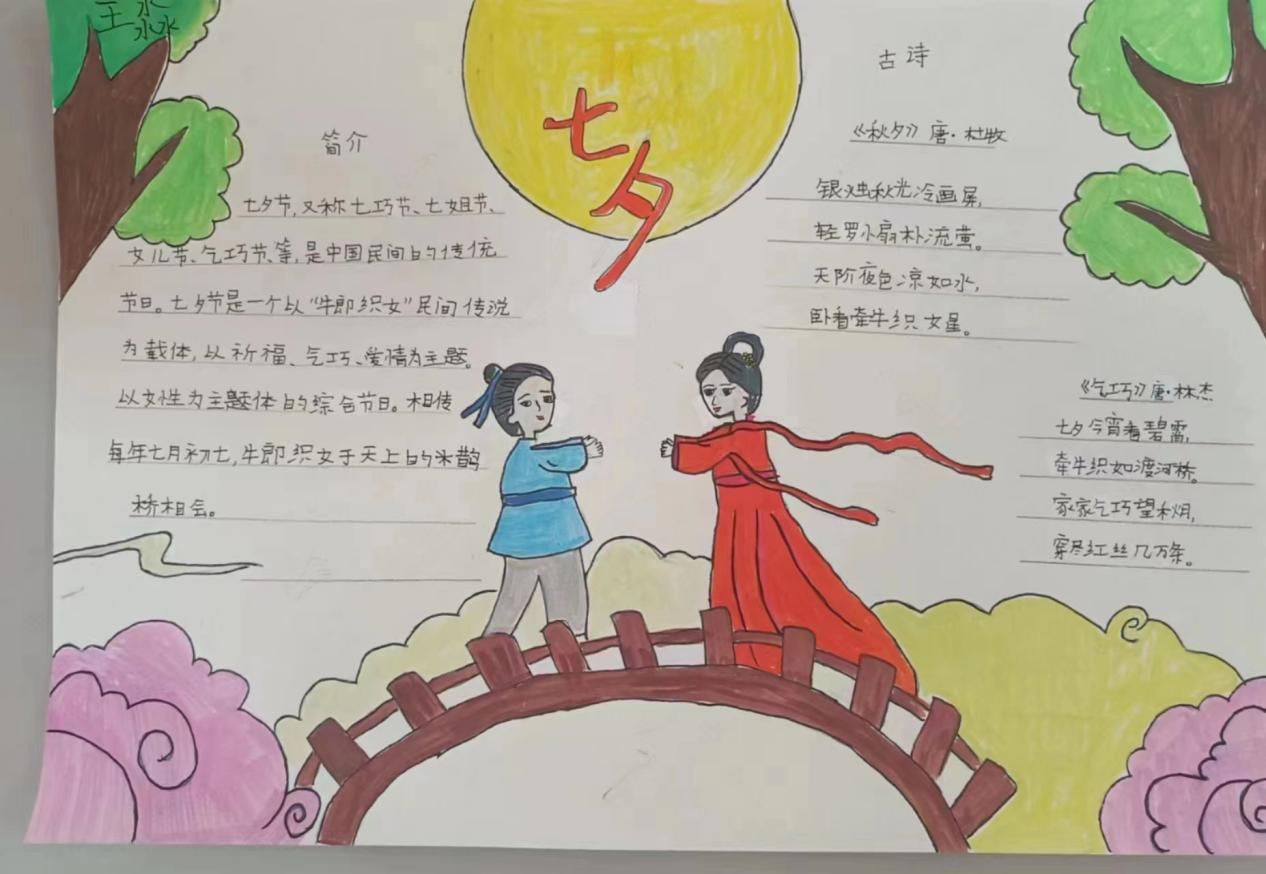 王淼
七夕
简介
七夕节,又称七巧节、七姐节、
女儿节、气巧节、等,是中国民间的传统
节日。七夕节是一个以“牛郎织女”民间传说
为载体,以祈福、气巧、爱情为主题。
以女性为主题体的综合节日。相传
每年七月初七,牛郎织女于天上的米鹊
桥相会。
古诗
《秋夕》唐·杜牧
银烛秋光冷画屏,
轻罗小扇朴流萤。
天阶夜色凉如水,
卧看牵牛织女星。
《气巧》唐·林杰
七夕今宵看碧霄,
牵牛织如渡河桥。
家家气巧望秋月,
穿尽红丝几万条。